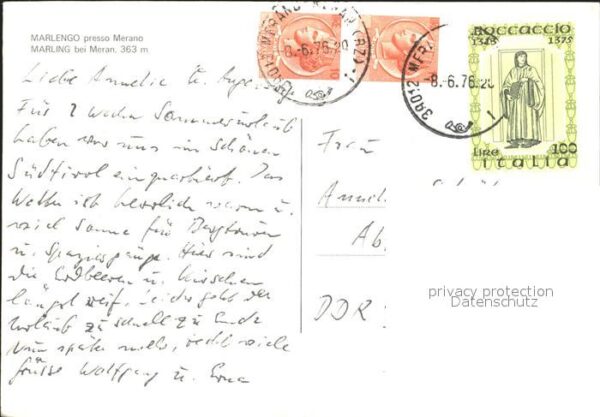 MARLENGO presso Merano
MARLING bei Meran. 363 m
39012 MERANO - MERAN (BZ)
-8.-6.76.20
39012 MERA
-8.-6.76.20
Boccaccio
1313 1375
LIRE 100
italia
Liebe Annelie u.
Für 2 Wochen Sommerurlaub
haben wir uns im schönen
Südtirol einquartiert. Das
Wetter ist herrlich warm u.
viel Sonne für Bergtouren
u. Spaziergänge. Hier sind
die Erdbeeren u. Kirschen
längst reif. Leider geht der
Urlaub zu schnell zu Ende
nun später mehr, recht viele
Grüsse Wolfgang u. Erna
Frau
Anneli
Ab
DDR
privacy protection
Datenschutz